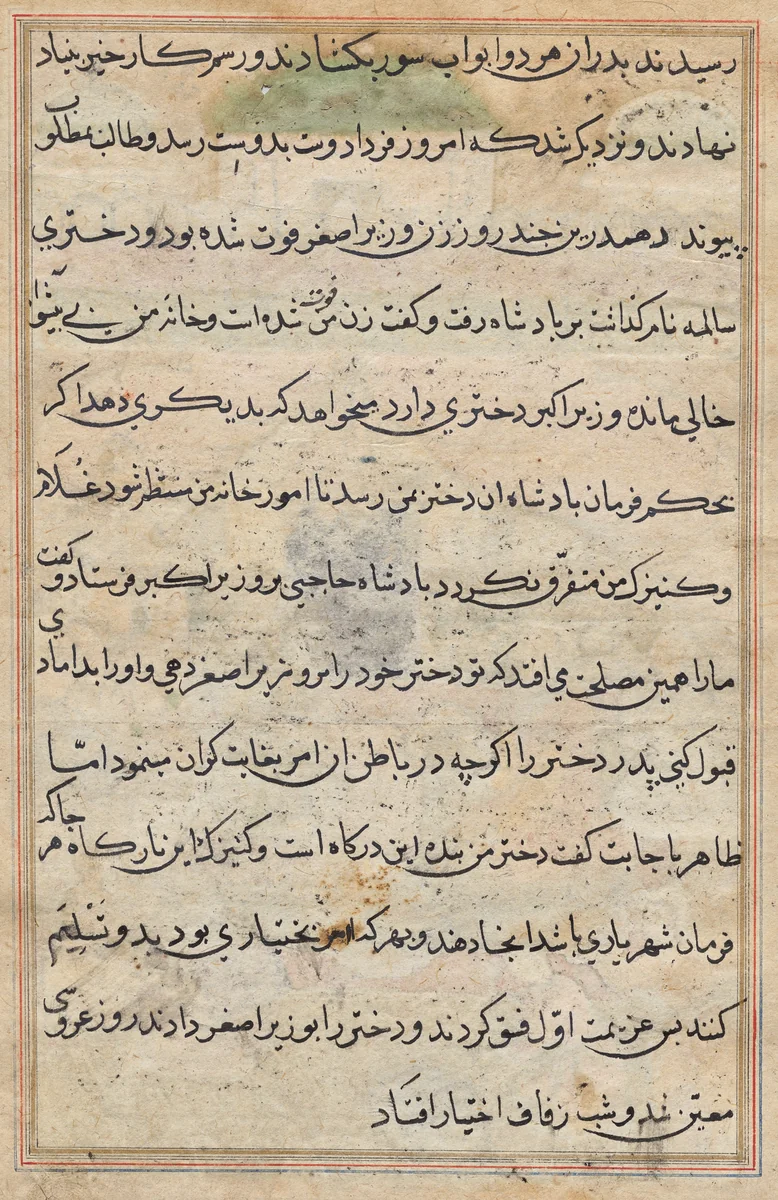 رسیدند بدران هر دو ابواب سور بکشادند و رسم کار خیر بنیاد
نهادند و نزدیک شد که امروز فردا دوست بدوست رسد و طالب بمطلوب
پیوندد همدرین چند روز زن وزیر اصغر فوت شده بود و دختري
سالمه نام کذاشت بر بادشاه رفت و کفت زن من فوت شده است و خانه من بی
خالي مانده وزیر اکبر دختري دارد میخواهد که بدیکري دهد اکر
بحکم فرمان بادشاه ان دختر بمن رسد تا امور خانه من منتظم شود غلام
و کنیزک من متفرّق نکردد بادشاه حاجبي بر وزیر اکبر فرستاد و کفت
مارا همین مصلحت مي افتد که تو دختر خود را بر وزیر اصغر دهي و او را بدامادي
قبول کني پدر دختر را اکرچه در باطن ان امر بغایت کران مینمود امّا
ظاهر باجابت کفت دختر من بنده این درکاه است و کنیزک این بارکاه هر جاکه
فرمان شهریاري باشد انجا دهند و بهر که امر بختیاري بود بدو تسلیم
کنند بس عزیمت اوّل فسق کردند و دختر را بوزیر اصغر دادند روز عروسی
معیّن شد و شب زفاف اختیار افتاد